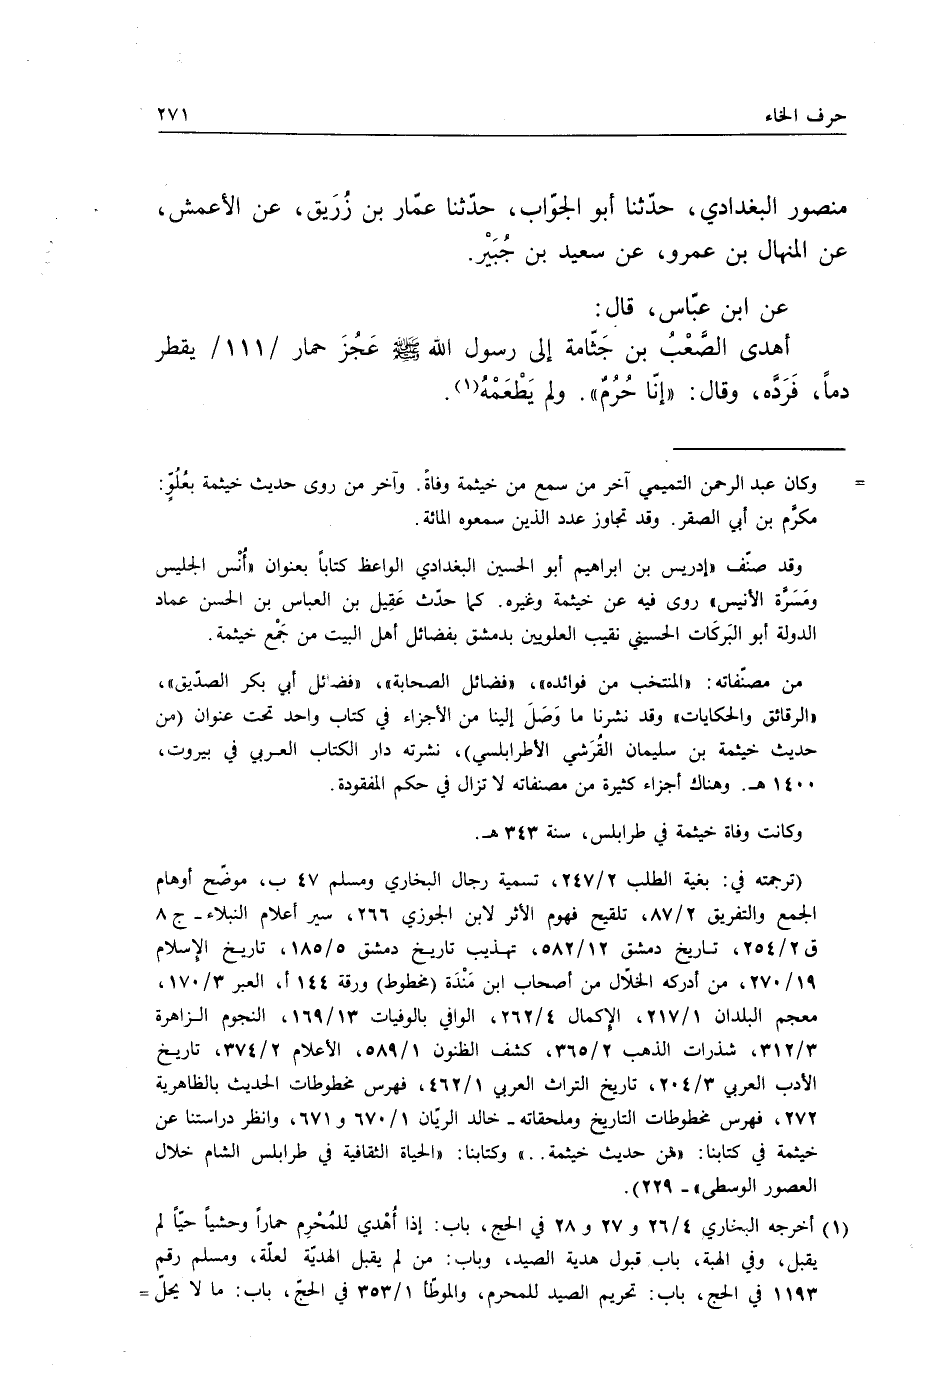 حرف الخاء ٢٧١
منصور البغدادي، حدّثنا أبو الجوّاب، حدّثنا عمّار بن زُرَيق، عن الأعمش،
عن المنهال بن عمرو، عن سعيد بن جُبَيْر.
عن ابن عبّاس، قال:
أهدى الصَّعْبُ بن جَثّامة إلى رسول الله ﷺ عَجُزَ حمار /١١١/ يقطر
دماً، فَرَدَّه، وقال: «إنّا حُرُمٌ». ولم يَطْعَمْهُ(١).
= وكان عبد الرحمن التميمي آخر من سمع من خيثمة وفاةً. وآخر من روى حديث خيثمة بعُلُوّ:
مكرَّم بن أبي الصقر. وقد تجاوز عدد الذين سمعوه المائة.
وقد صنّف «إدريس بن ابراهيم أبو الحسين البغدادي الواعظ كتاباً بعنوان «أُنْس الجليس
ومَسَرَّة الأنيس» روى فيه عن خيثمة وغيره. كما حدّث عَقِيل بن العباس بن الحسن عماد
الدولة أبو البَركَات الحسيني نقيب العلويين بدمشق بفضائل أهل البيت من جَمْع خيثمة.
من مصنّفاته: «المنتخب من فوائده»، «فضائل الصحابة»، «فضائل أبي بكر الصدّيق»،
«الرقائق والحكايات» وقد نشرنا ما وَصَلَ إلينا من الأجزاء في كتاب واحد تحت عنوان (من
حديث خيثمة بن سليمان القُرَشي الأطرابلسي)، نشرته دار الكتاب العربي في بيروت،
١٤٠٠ هـ. وهناك أجزاء كثيرة من مصنفاته لا تزال في حكم المفقودة.
وكانت وفاة خيثمة في طرابلس، سنة ٣٤٣ هـ.
(ترجمته في: بغية الطلب ٢٤٧/٢، تسمية رجال البخاري ومسلم ٤٧ ب، موضّح أوهام
الجمع والتفريق ٨٧/٢، تلقيح فهوم الأثر لابن الجوزي ٢٦٦، سير أعلام النبلاء - ج ٨
ق ٢٥٤/٢، تاريخ دمشق ٥٨٢/١٢، تهذيب تاريخ دمشق ١٨٥/٥، تاريخ الإسلام
٢٧٠/١٩، من أدركه الخلّال من أصحاب ابن مَنْدَة (مخطوط) ورقة ١٤٤ أ، العبر ١٧٠/٣،
معجم البلدان ٢١٧/١، الإكمال ٢٦٢/٤، الوافي بالوفيات ١٦٩/١٣، النجوم الزاهرة
٣١٢/٣، شذرات الذهب ٣٦٥/٢، كشف الظنون ٥٨٩/١، الأعلام ٣٧٤/٢، تاريخ
الأدب العربي ٢٠٤/٣، تاريخ التراث العربي ٤٦٢/١، فهرس مخطوطات الحديث بالظاهرية
٢٧٢، فهرس مخطوطات التاريخ وملحقاته - خالد الريّان ٦٧٠/١ و ٦٧١، وانظر دراستنا عن
خيثمة في كتابنا: «من حديث خيثمة..» وكتابنا: «الحياة الثقافية في طرابلس الشام خلال
العصور الوسطى» - ٢٢٩).
(١) أخرجه البخاري ٢٦/٤ و ٢٧ و ٢٨ في الحج، باب: إذا أُهْدي للمُحْرِم حماراً وحشياً حيّاً لم
يقبل، وفي الهبة، باب قبول هدية الصيد، وباب: من لم يقبل الهديّة لعلّة، ومسلم رقم
١١٩٣ في الحج، باب: تحريم الصيد للمحرم، والموطّأ ٣٥٣/١ في الحجّ، باب: ما لا يحلّ =